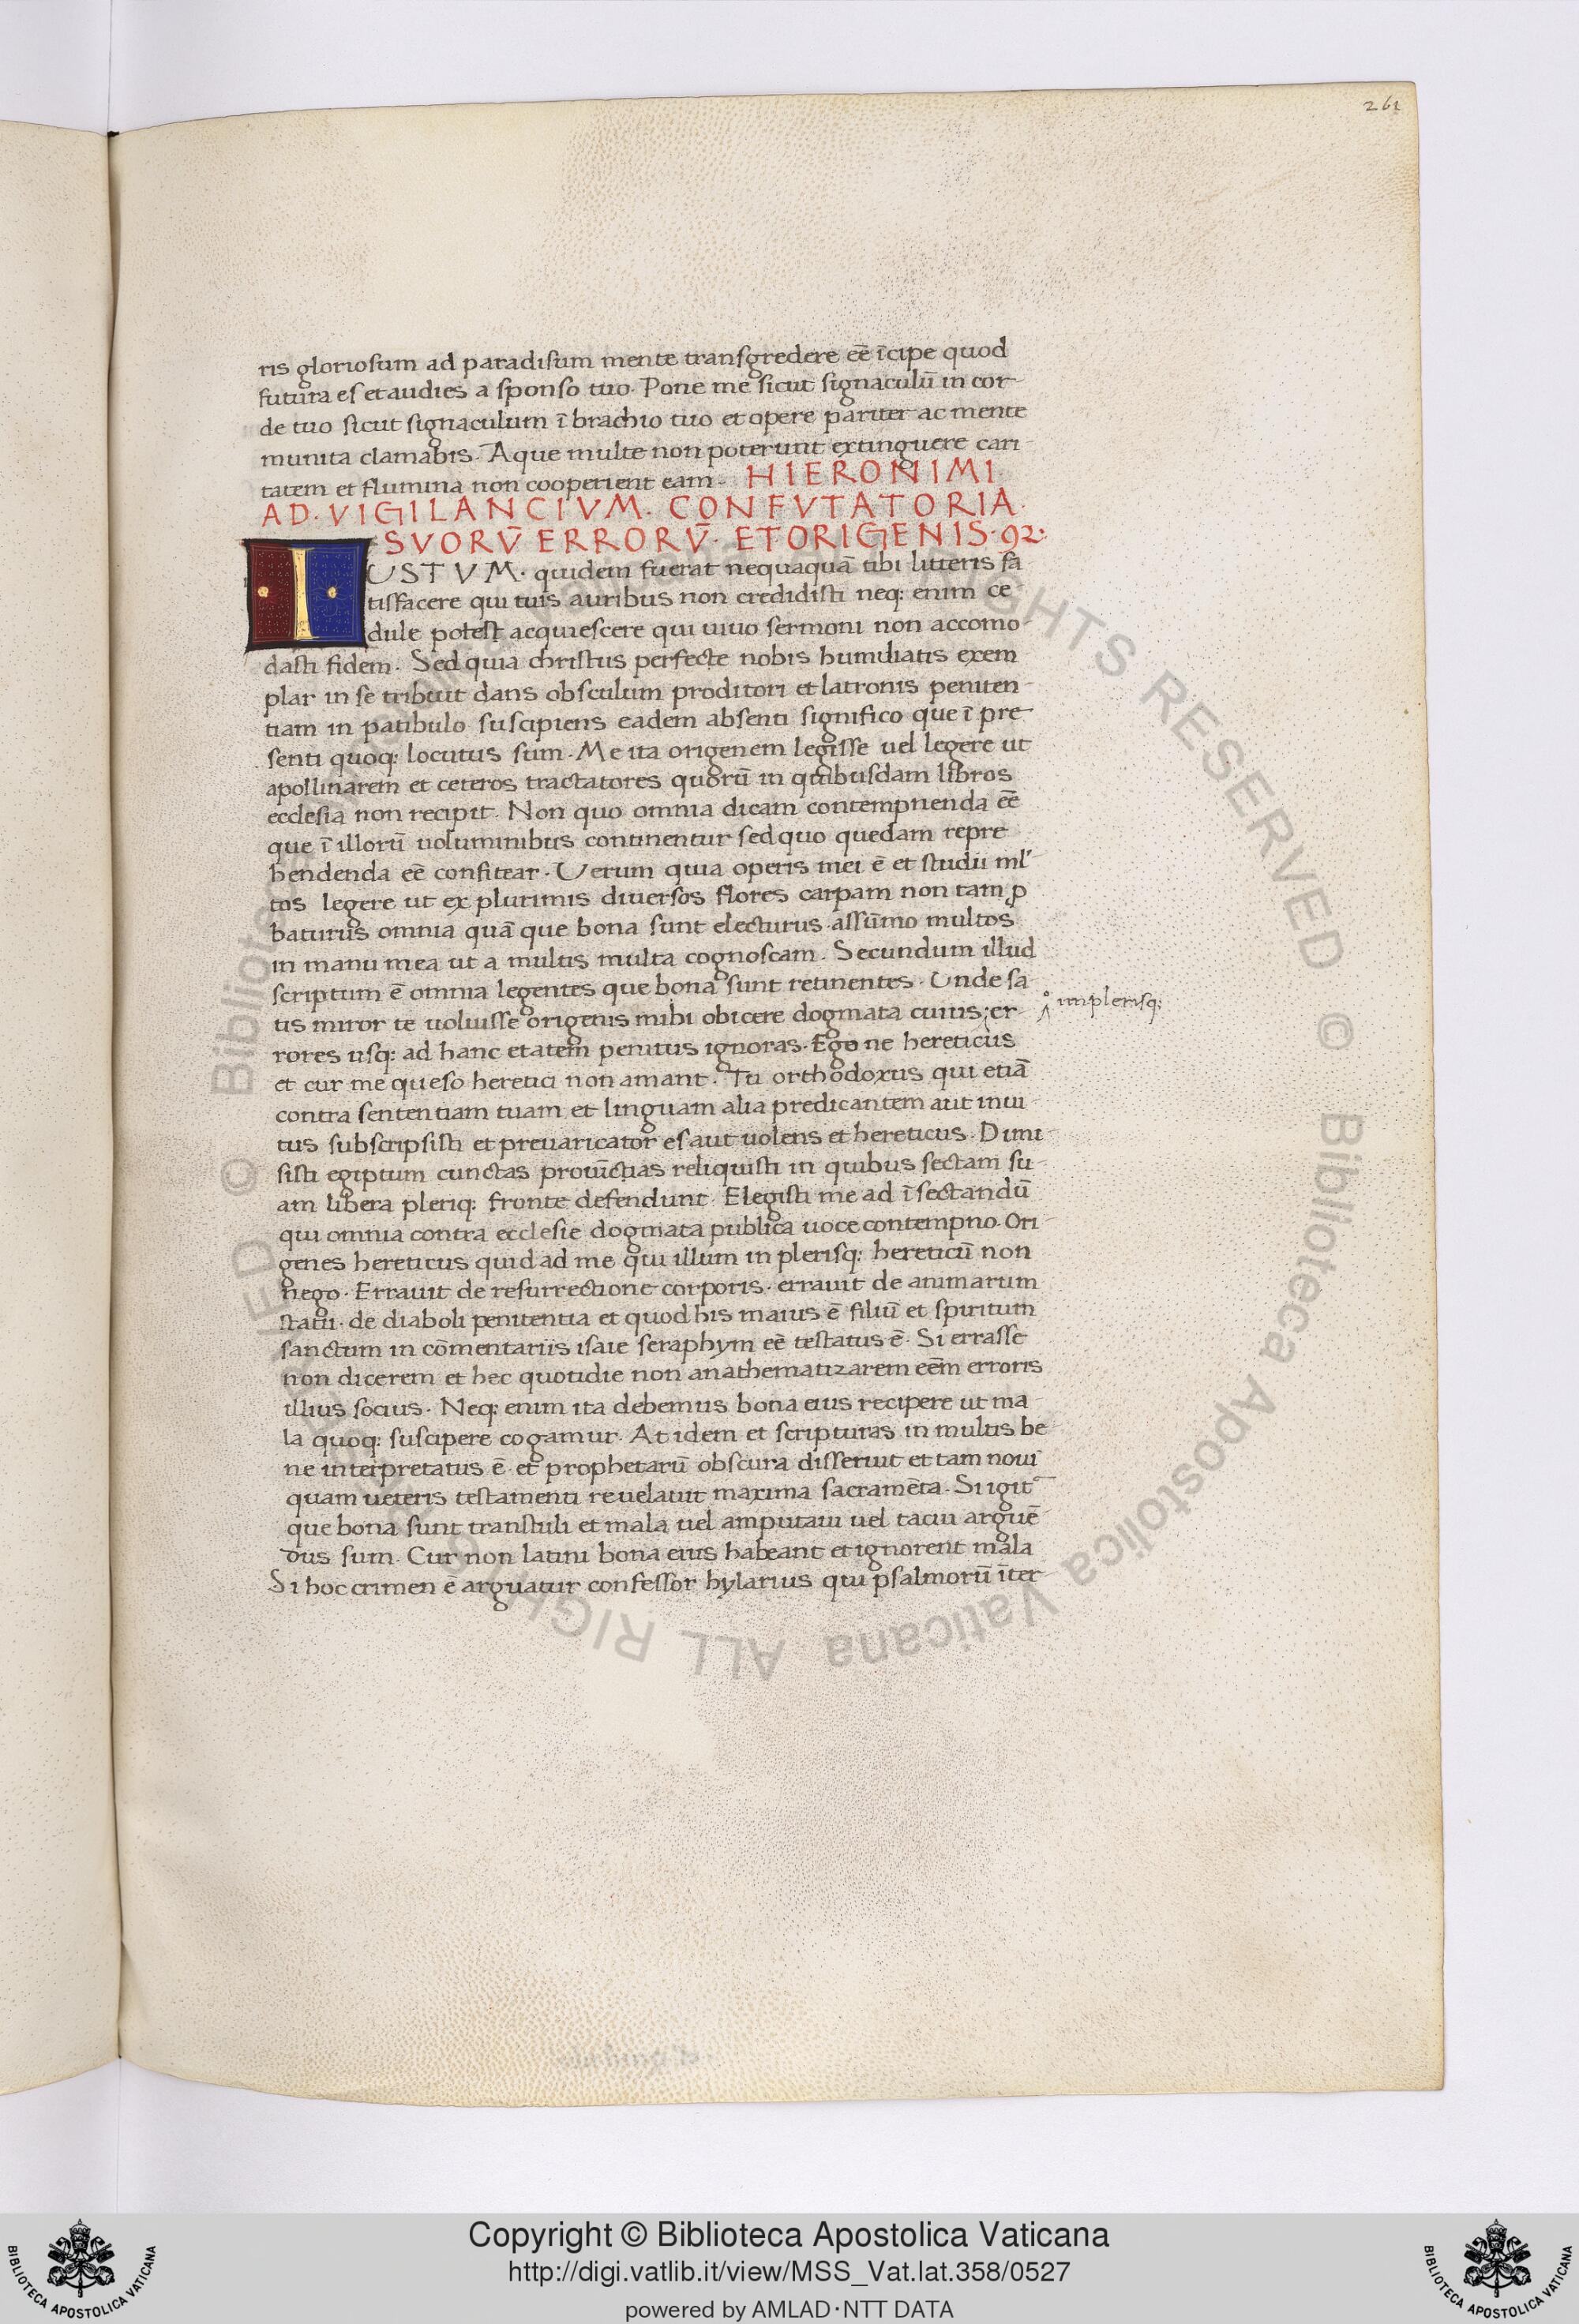 261
ris gloriosum ad paradisum mente transgredere eē īcipe quod
futura es et audies a sponso tuo· Pone me sicut signaculū in cor-
de tuo sicut signaculum ī brachio tuo et opere pariter ac mente
munita clamabis· Aque multe non poterunt extinguere cari-
tatem et flumina non cooperient eam· HIERONIMI
AD·VIGILANCIVM· CONFVTATORIA·
SVORV̄ ERRORV̄· ET ORIGENIS·92·
IUSTVM· quidem fuerat nequaquā tibi litteris sa
tisfacere qui tuis auribus non credidisti neq: enim ce-
dule potest acquiescere qui uiuo sermoni non accomo-
dasti fidem· Sed quia christus perfecte nobis humiliatis exem
plar in se tribuit dans obsculum proditori et latronis peniten-
tiam in patibulo suscipiens eadem absenti significo que ī pre-
senti quoq: locutus sum· Me ita origenem legisse uel legere ut
apollinarem et ceteros tractatores quorū in quibusdam libros
ecclesia non recipit· Non quo omnia dicam contempnenda eē
que ī illorū uoluminibus continentur sed quo quedam repre
hendenda eē confitear· Uerum quia operis mei ē et studii ml'-
tos legere ut ex plurimis diuersos flores carpam non tam ꝓ
baturus omnia quā que bona sunt electurus· assūmo multos
in manu mea ut a multis multa cognoscam· Secundum illud
scriptum ē omnia legentes que bona sunt retinentes· Unde sa
tis miror te uoluisse origenis mihi obicere dogmata cuius er-
in plerisq:
rores usq: ad hanc etatem penitus ignoras· Ego ne hereticus
et cur me queso heretici non amant· Tu orthodoxus qui etiā
contra sententiam tuam et linguam alia predicantem aut inui-
tus subscripsisti et preuaricator es aut uolens et hereticus· Dimi-
sisti egiptum cunctas prouīctias reliquisti in quibus sectam su-
am libera pleriq: fronte defendunt· Elegisti me ad īsectandū
qui omnia contra ecclesie dogmata publica uoce contempno· Ori-
genes hereticus quid ad me qui illum in plerisq: hereticū non
nego· Errauit de resurrectione corporis· errauit de animarum
statu· de diaboli penitentia et quod his maius ē filiū et spiritum
sanctum in cōmentariis isaie seraphym eē testatus ē· Si errasse
non dicerem et hec quotidie non anathematizarem eēm erroris
illius socius· Neq: enim ita debemus bona eius recipere ut ma-
la quoq: suscipere cogamur· At idem et scripturas in multis be-
ne interpretatus ē et prophetarū obscura disseruit et tam noui
quam ueteris testamenti reuelauit maxima sacramēta· Si igit
que bona sunt transtuli et mala uel amputaui uel tacui arguē-
dus sum· Cur non latini bona eius habeant et ignorent mala
Si hoc crimen ē arguatur confessor hylarius qui psalmorū īter-
© Biblioteca Apostolica Vaticana ALL RIGHTS RESERVED
© Biblioteca Apostolica Vaticana ALL RIGHTS RESERVED
BIBLIOTECA APOSTOLICA VATICANA
Copyright © Biblioteca Apostolica Vaticana
http://digi.vatlib.it/view/MSS_Vat.lat.358/0527
powered by AMLAD·NTT DATA
BIBLIOTECA APOSTOLICA VATICANA